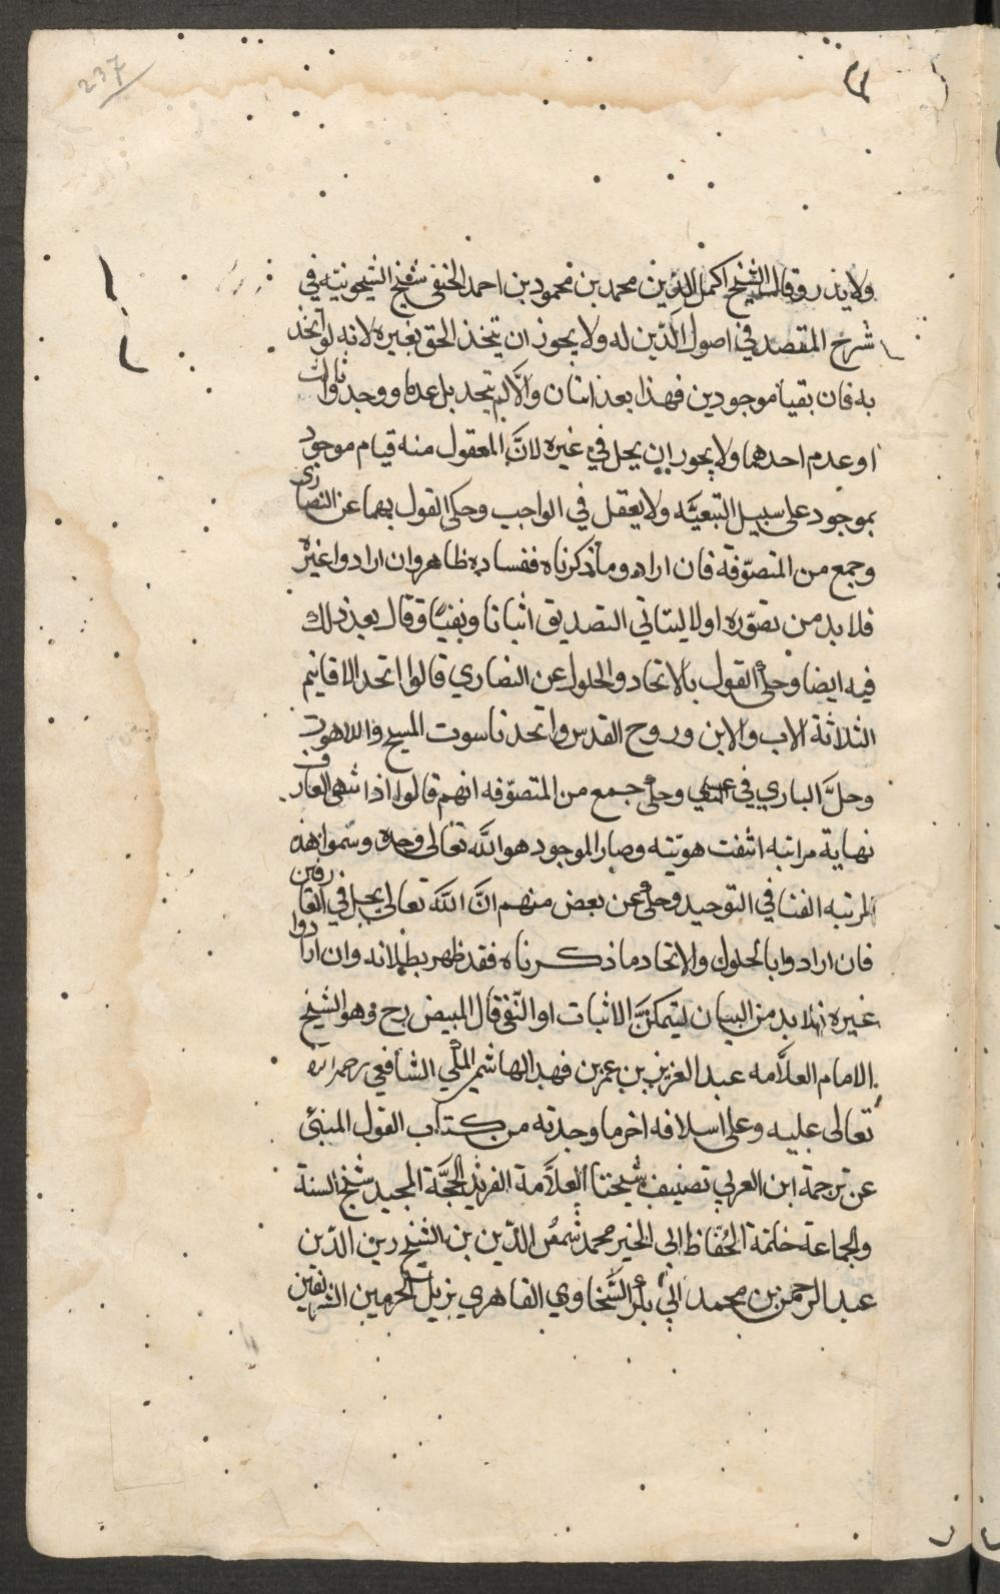 237
ولا يذر وقال الشيخ اكمل الدين محمد بن محمود بن احمد الحنفي شيخ الشيخونية في
شرح المقصد في اصول الدين له ولا يجوز ان يتخذ الحق بغيره لانه لو اتخذ
به فان بقيا موجودين فهذا بعد اثنان والا لم يتحد بل عدما ووجد ثالث
او عدم احدهما ولا يجوز ان يحل في غيره لان المعقول منه قيام موجود
بموجود على سبيل التبعيه ولا يعقل في الواجب وحكي القول بهما عن النصارى
وجمع من المتصوفة فان ارادوا ما ذكرناه ففساده ظاهر وان ارادوا غيره
فلا بد من تصوره اولا ليتاتي التصديق اثباتا ونفيا وقال بعد ذلك
فيه ايضا وحكي القول بالاتحاد والحلول عن النصاري قالوا اتحد الاقانيم
الثلاثة الاب والابن وروح القدس واتحد ناسوت المسيح واللاهوت
وحل الباري في عيسي وحكي جمع من المتصوفه انهم قالوا اذا انتهى العارف
نهاية مراتبه انتفت هويته وصار الموجود هو الله تعالى وحده وسموا هذه
المرتبه الفنا في التوحيد وحكي عن بعض منهم ان الله تعالى يحل في العارفين
فان ارادوا بالحلول والاتحاد ما ذكرناه فقد ظهر بطلانه وان ارادوا
غيره فلا بد من البيان ليتمكن الاثبات او النفي قال المبيض رح وهو الشيخ
الامام العلامه عبد العزيز بن عمر بن فهد الهاشمي المكي الشافعي رحمه الله
تعالى عليه وعلى اسلافه اخر ما وجدته من كتاب القول المنبئ
عن ترجمة ابن العربي تصنيف شيخنا العلامة الفريد الحجة المجيد شيخ السنة
والجماعة خاتمة الحفاظ ابي الخير محمد شمس الدين بن الشيخ زين الدين
عبد الرحمن بن محمد ابي بكر السخاوي القاهري نزيل الحرمين الشريفين